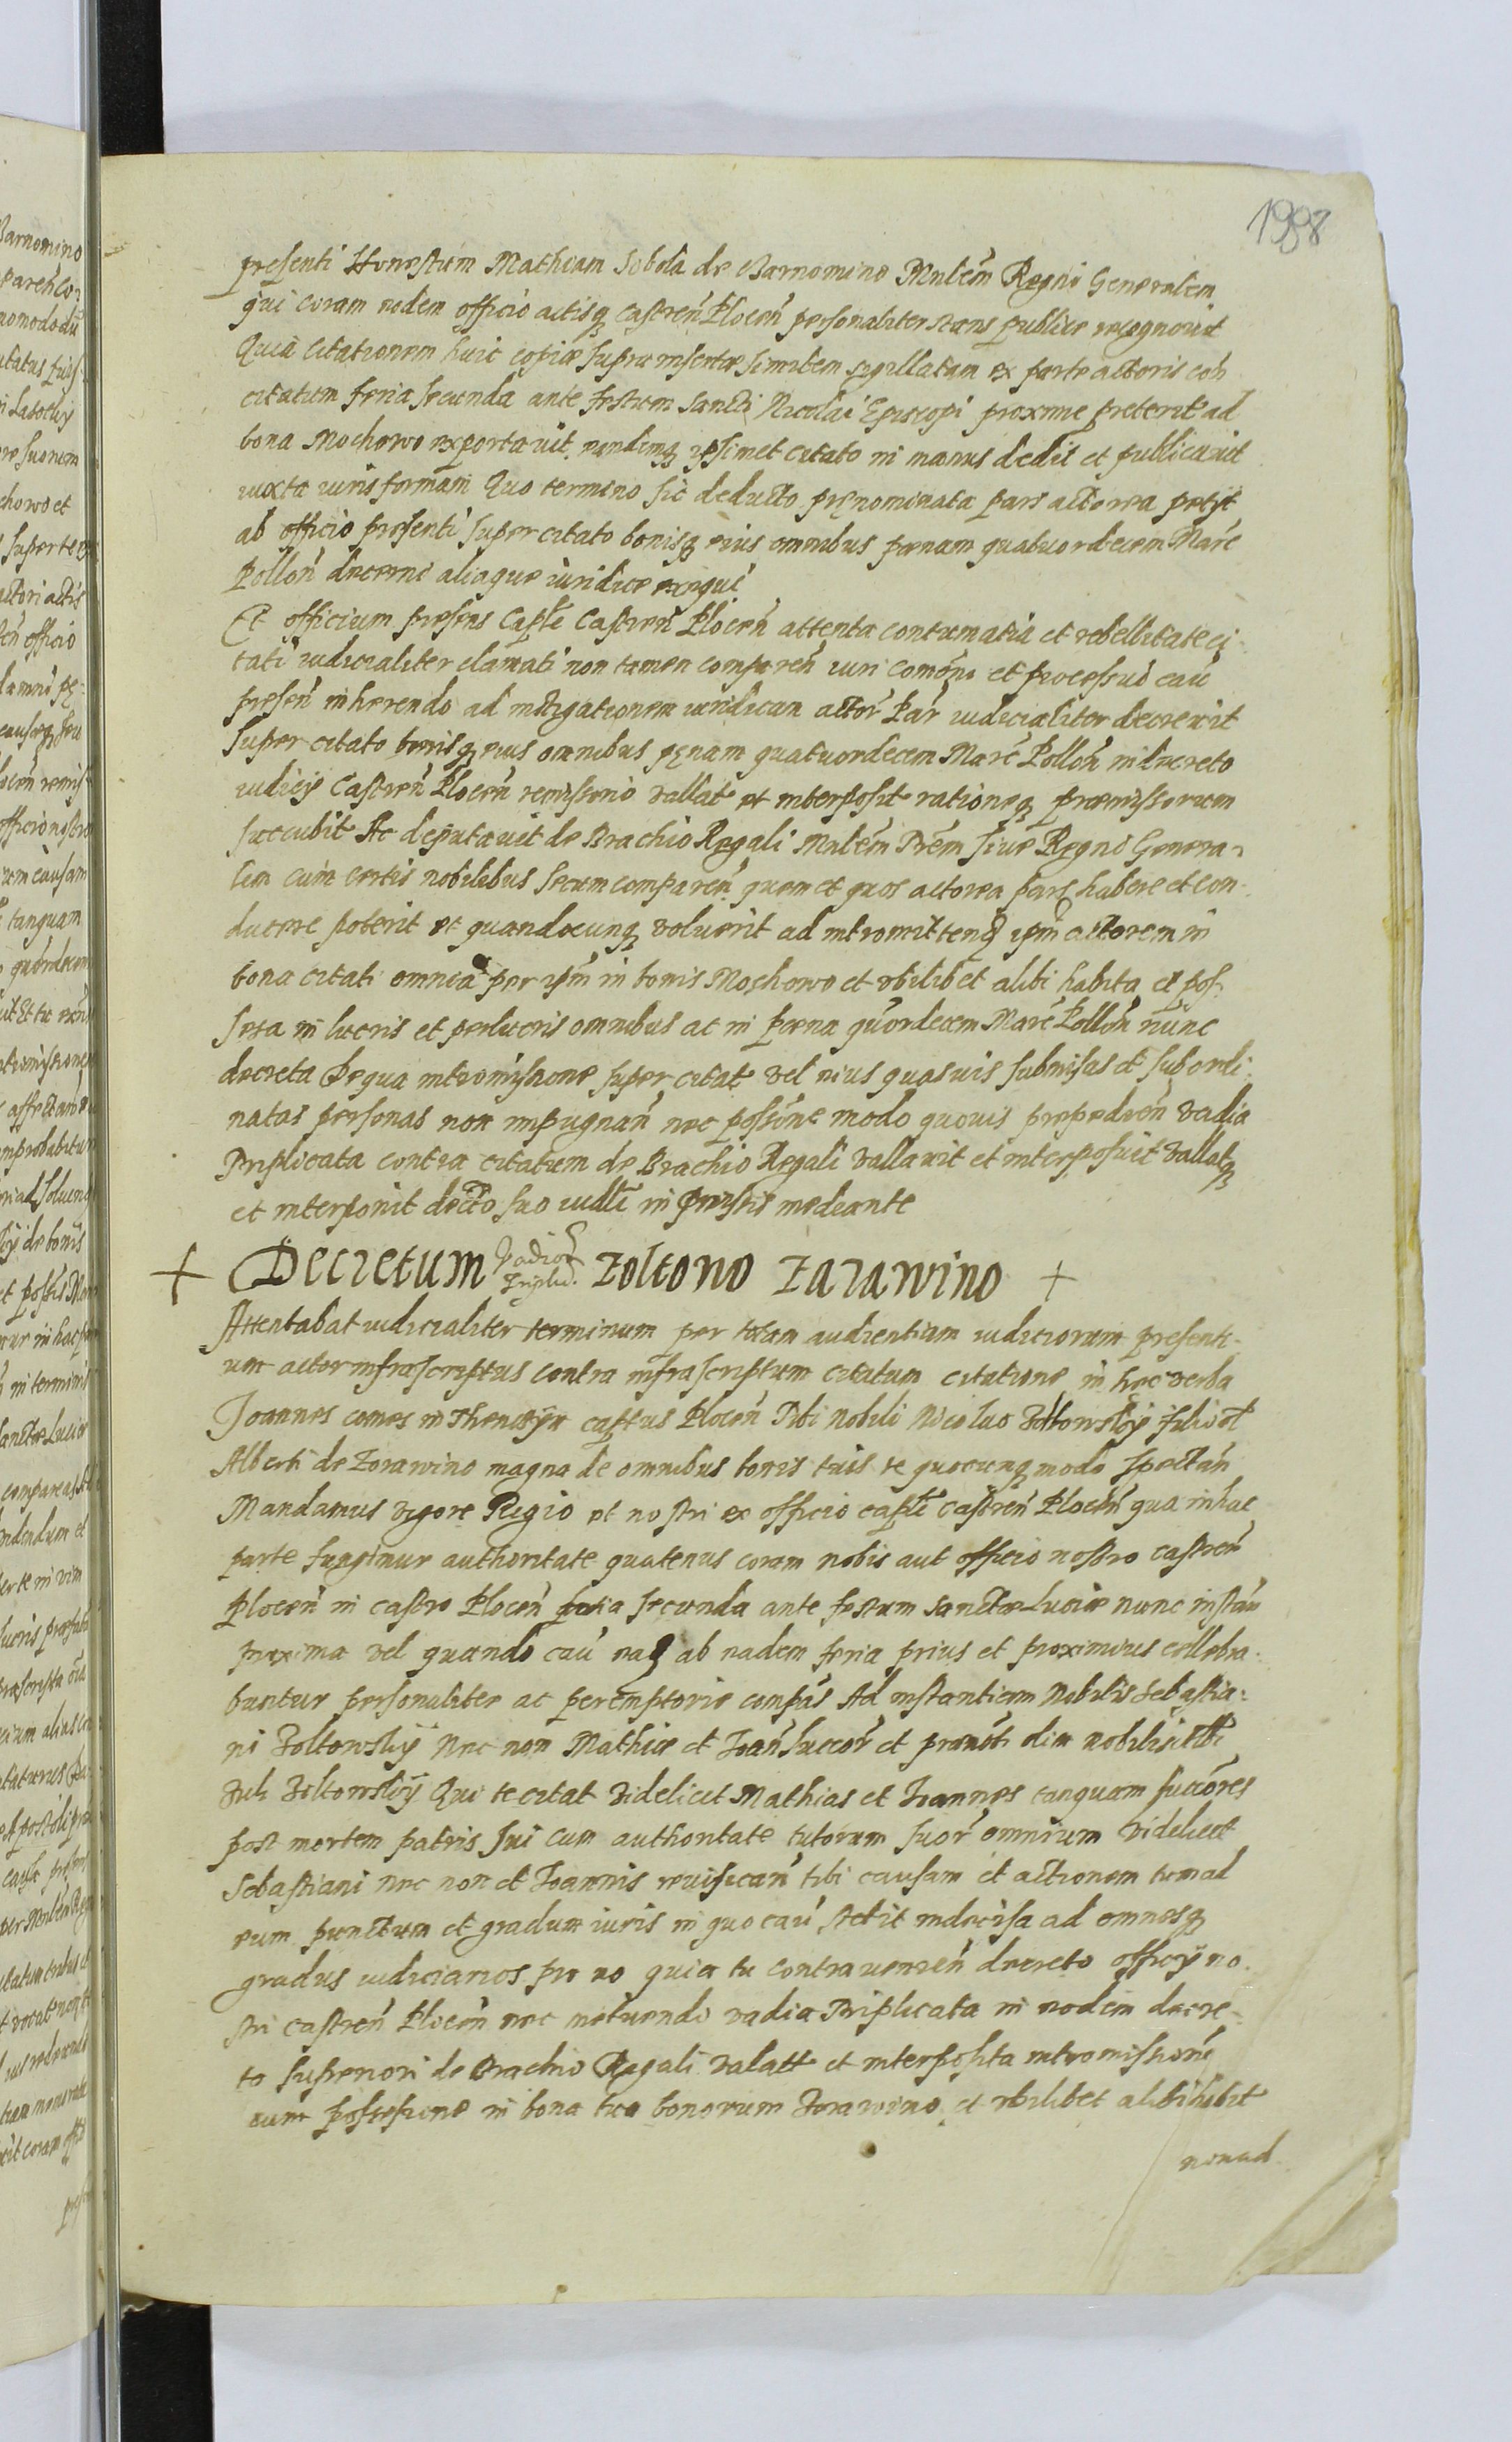 1988
presenti Honestum Mathiam Sobola de Barnomino Mnlem Regni Generalem
qui coram eodem officio actisq castren Plocen personaliter stans publice recognovit
Quia citationem huic copiæ supra insertæ similem sigillatam ex parte actoris con
citatum feria secunda ante festum Sancti Nicolai Episcopi proxime preterit ad
bona Mochowo exportavit eandemq ipsimet citato in manus dedit et publicavit
iuxta iuris formam Quo termino sic deducto pręnominata pars actorea petyt
ab officio presenti super citato bonisq eius omnibus pænam quatuordecem Marc
Pollon decerni aliaque iuridice exequi
Et officium presens Capli Castren Plocen attenta contumatia et rebellitate ci-
tati iudicialiter clamati non tamen comparen iuri comoni et processui cau
presen inherendo ad instigationem iuridicam actor Par iudicialiter decrevit
super citato bonisq eius omnibus pęnam quatuordecem Marc Pollon in decreto
iudicij Castren Plocen remissorio vallat et interposit rationeq præmissorum
succubit Ac deputavit de Brachio Regali Mnlem Trem sive Regni Genera-
lem cum certis nobilibus secum comparen quem et quos actorea pars habere et con-
ducere poterit et quandocunq voluerit ad intromitten ipm actorem in
bona citati omnia per ipm in bonis Mochowo et ubilibet alibi habita et pos-
sessa in lucris et perlucris omnibus ac in pæna quordecem Marc Pollon nunc
decreta De qua intromissione super citat vel eius quasvis submisas et subordi-
natas personas non impugnan nec possone modo quovis prepedien vadia
Triplicata contra citatum de Brachio Regali vallavit et interposuit vallatq
et interponit decto suo iudli in premissis mediante
+ Decretum Vadior Triplic. Zoltono Zarawino +
Attentabat iudicialiter terminum per totam audientiam iudiciorum presenti-
um actor infrascriptus contra infrascriptum citatum citatione in hęc verba
Joannes comes in Thenczyn captus Plocen Tibi nobili Nicolao Zoltowskÿ filio ol
Alberti de Zorawino magna de omnibus bonis tuis te quocunq modo spectan
Mandamus vigore Regio et nostri ex officio capli castren Plocen qua in hac
parte fungimur authoritate quatenus coram nobis aut officio nostro castren
Plocen in castro Plocen feria secunda ante festum sanctæ Luciæ nunc instan
proxima vel quando cau ab eadem feria prius et proximius cellebra-
buntur personaliter ac peremptorie compas Ad instantiam Nobilis Sebastia-
ni Zoltowskÿ Nec non Mathiæ et Joan succor et olim nobilis
Zoltowskÿ Qui te citat videlicet Mathias et Joannes tanquam succores
post mortem patris sui cum authoritate tutorum suor omnium videlicet
Sebastiani nec non et Joannis revisican tibi causam et actionem tum ad
eum punctum et gradum iuris in quo cau stetit indecisa ad omnesq
gradus iudiciarios pro eo quia tu contravenien decreto officÿ no-
stri castren Plocen nec metuendo vadia Triplicata in eodem decre-
to superiori de Brachio Regali valatt et interposita intromissione
cum possessione in bona tua bonorum Zorawino et ubilibet alibi habit
non ad